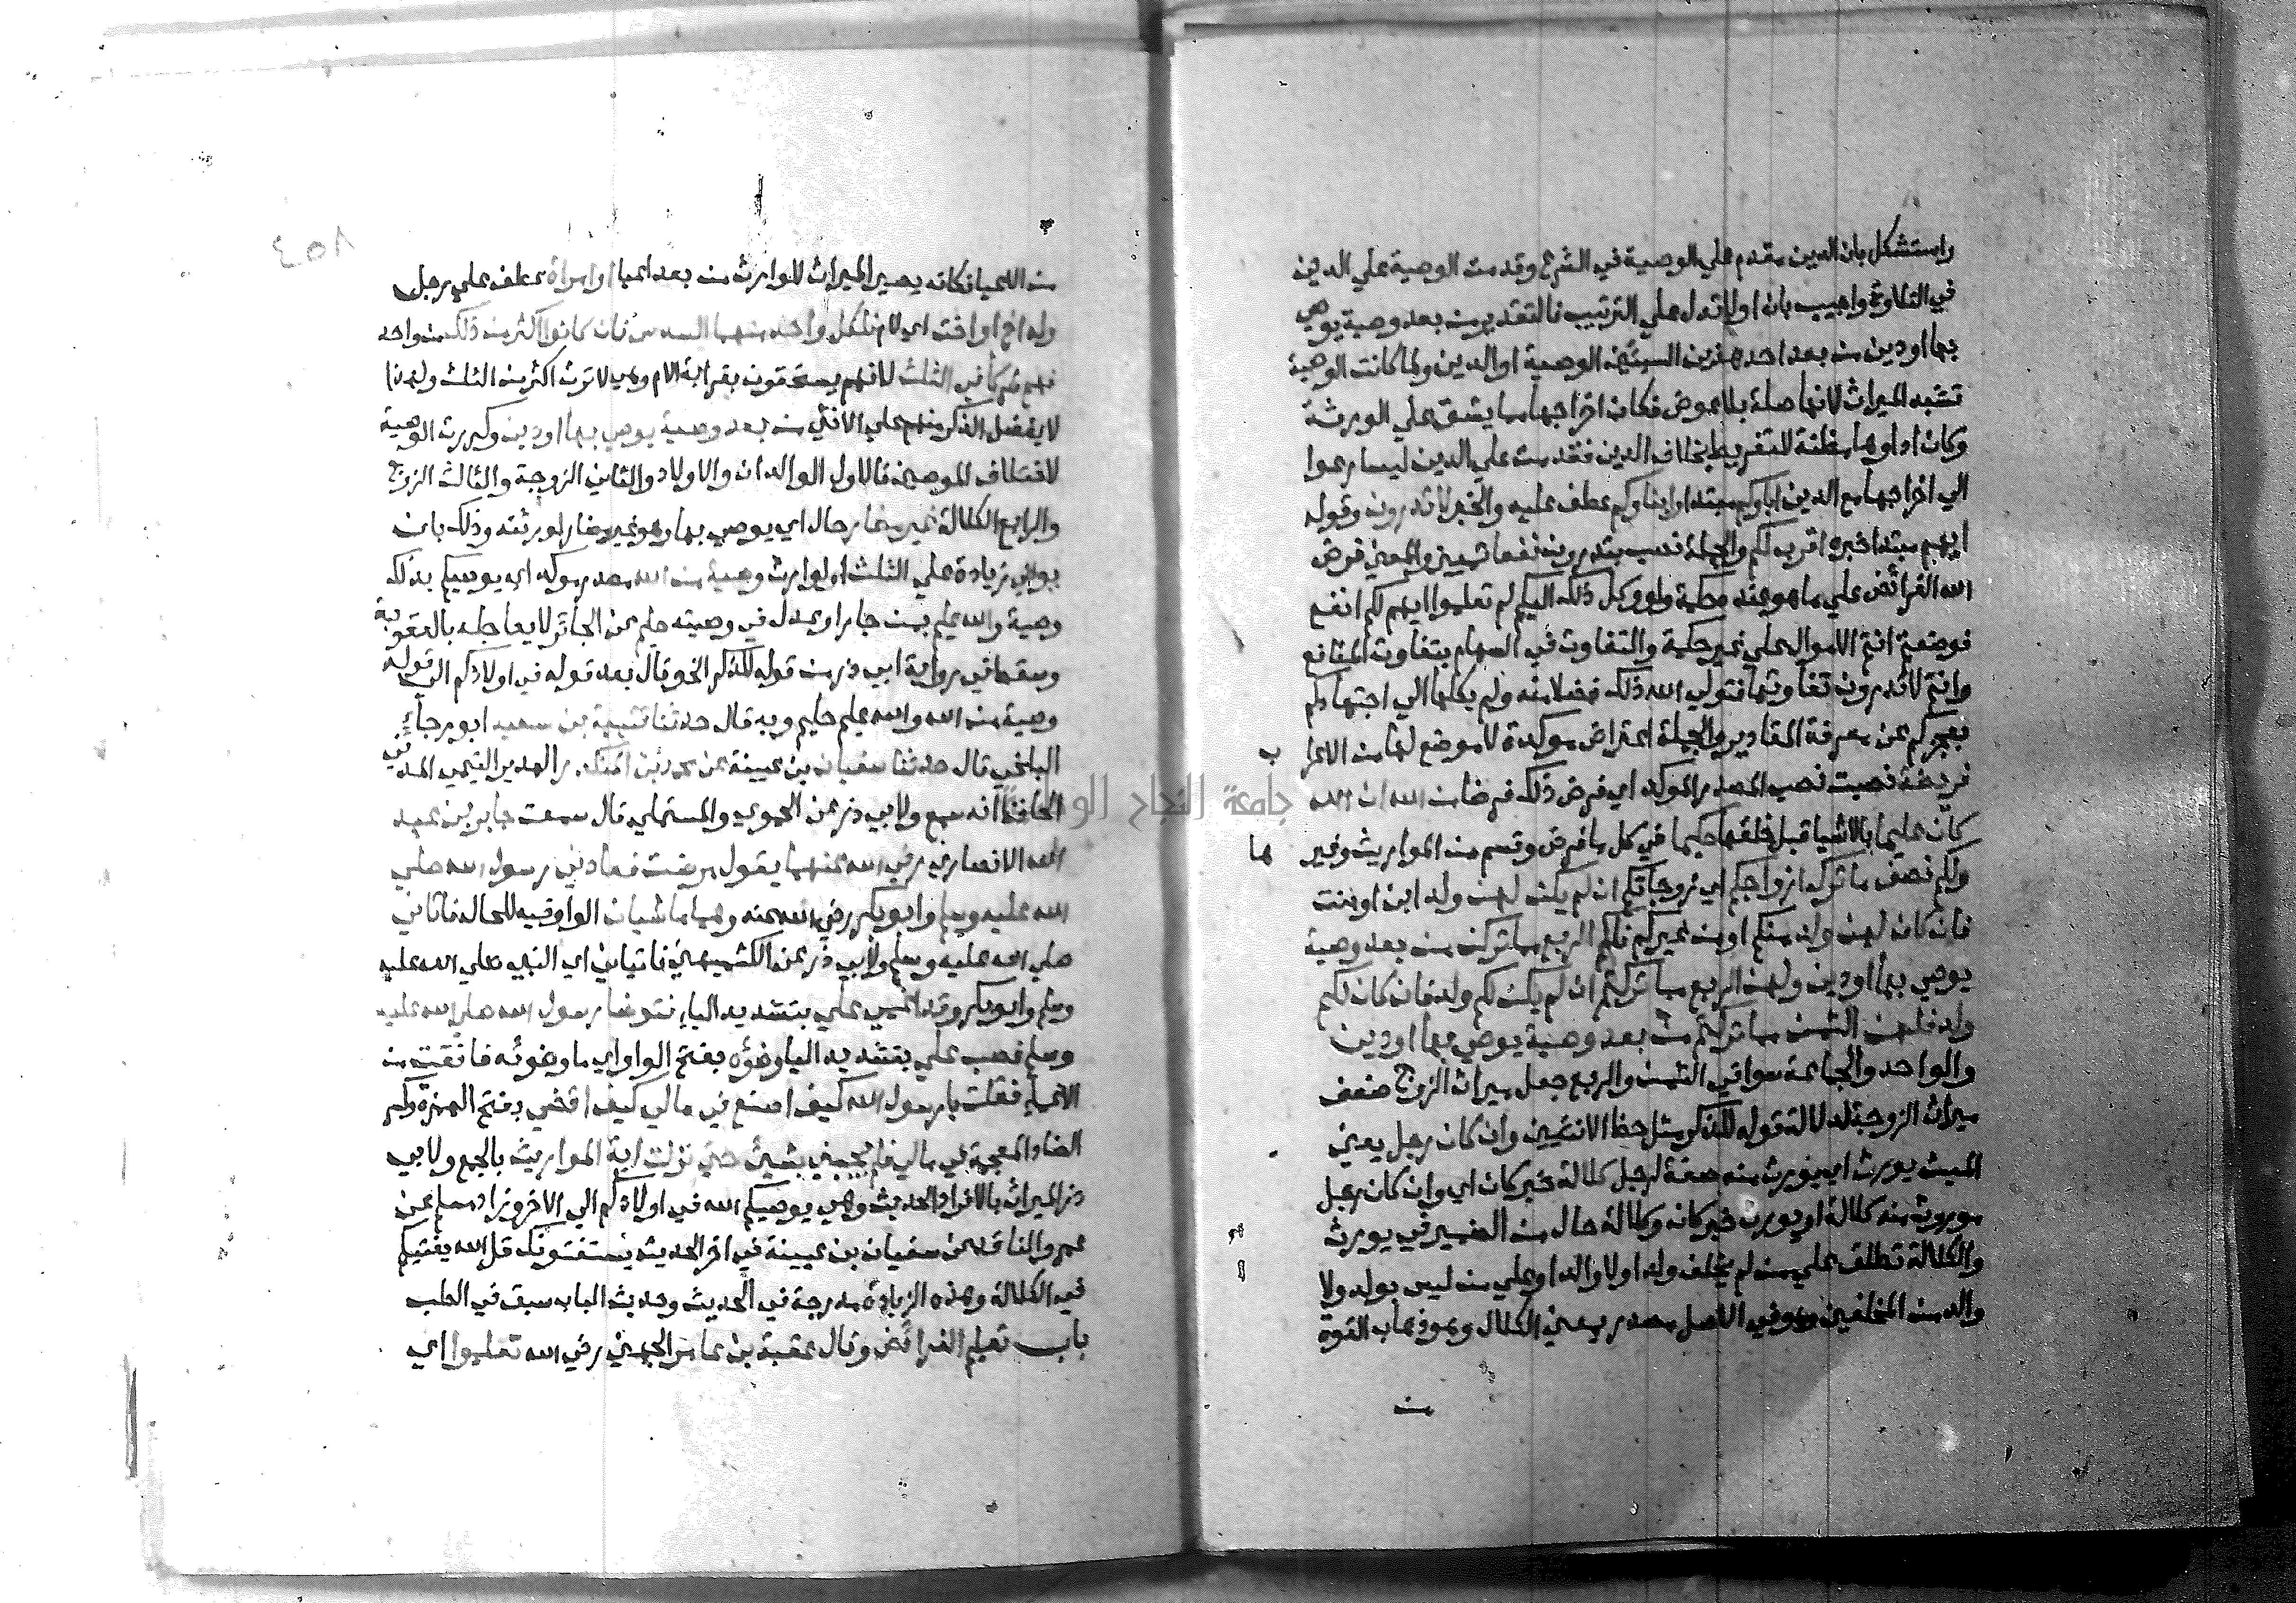 واستشكل بان الدين مقدم علي الوصية في الشرع وقدمت الوصية علي الدين
في التلاوة واجيب بان او لا تدل علي الترتيب فالتقدير من بعد وصية يوصي
بها او دين من بعد احد هذين السيئين الوصية او الدين ولما كانت الوصية
تشبه الميراث لانها صلة بلا عوض فكان اخراجها مما يشق علي الورثة
وكان اداوها مظنة للتفريط بخلاف الدين فقدمت علي الدين ليسارعوا
الي اخراجها مع الدين اباوكم مبتدا وابناوكم عطف عليه والخبر لا تدرون وقوله
ايهم مبتدا خبره اقرب لكم والجملة نصب بتدرون نفعا تمييز والمعني فرض
الله الفرائض علي ما هو عنده حكمة ولو وكل ذلك اليكم لم تعلموا ايهم لكم انفع
فوضعتم انتم الاموال علي غير حكمة والتفاوت في السهام بتفاوت المنافع
وانتم لا تدرون تفاوتها فتولي الله ذلك فضلا منه ولم يكلها الي اجتهادكم
بعجزكم عن معرفة المقادير والجملة اعتراض موكدة لا موضع لها من الاعرا ب
فريضة نصبت نصب المصدر الموكد اي فرض ذلك فرضا من الله ان الله
كان عليما بالاشيا قبل خلقها حكيما في كل ما فرض وقسم من المواريث وغير ها
ولكم نصف ما ترك ازواجكم اي زوجاتكم ان لم يكن لهن ولد ابن او بنت
فان كان لهن ولد منكم او من غيركم فلكم الربع مما تركن من بعد وصية
يوصي بها او دين ولهن الربع مما تركتم ان لم يكن لكم ولد فان كان لكم
ولد فلهن الثمن مما تركتم من بعد وصية يوصي بها او دين
والواحد والجماعة سوا في الثمن والربع جعل ميراث الزوج ضعف
ميراث الزوجة لدلالة قوله للذكر مثل حظ الانثيين وان كان رجل يعني
الميت يورث اي يورث منه صفة لرجل كلالة خبر كان اي وان كان رجل
موروث منه كلالة او يورث خبر كان وكلالة حال من الضمير في يورث
والكلالة تطلق علي من لم يخلف ولدا ولا والدا وعلي من ليس بولد ولا
والد من المخلفين وهو في الاصل مصدر بمعني الكلال وهو ذهاب القوة
من
من الاعيا فكانه يصير الميراث للوارث من بعد اعيا او امراة عطف علي رجل
وله اخ او اخت اي لام فلكل واحد منهما السدس فان كانوا اكثر من ذلك من واحد
فهم شركا في الثلث لانهم يستحقون بقرابة الام وهي لا ترث اكثر من الثلث ولهذا
لا يفضل الذكر منهم علي الانثي من بعد وصية يوصي بها او دين وكررت الوصية
لاختلاف الموصين فالاول الوالدان والاولاد والثاني الزوجة والثالث الزوج
والرابع الكلالة غير مضار حال اي يوصي بها وهو غير مضار لورثته وذلك بان
يوصي زيادة علي الثلث او لوارث وصية من الله مصدر موكد اي يوصيكم بذلك
وصية والله عليم بمن جار او عدل في وصيته حليم عن الجائر لا يعاجله بالعقوبة
وسقط في رواية ابي ذر من قوله للذكر الخ وقال بعد قوله في اولادكم الي قوله
وصية من الله والله عليم حليم وبه قال حدثنا قتيبة بن سعيد ابو رجاء
البلخي قال حدثنا سفيان بن عيينة عن محمد بن المنكدر الهدير التيمي المدني
الحافظ انه سمع ولابي ذر عن الحموي والمستملي قال سمعت جابر بن عبد
الله الانصاري رضي الله عنهما يقول مرضت فعادني رسول الله صلي
الله عليه وسلم وابو بكر رضي الله عنه وهما ماشيان الواو فيه للحال فاتاني
صلي الله عليه وسلم ولابي ذر عن الكشميهني فاتياني اي النبي صلي الله عليه
وسلم وابو بكر وقد اغمي علي بتشديد اليا فتوضا رسول الله صلي الله عليه
وسلم فصب علي بتشديد اليا وضوه بفتح الواو اي ما وضوئه فافقت من
الاغماء فقلت يا رسول الله كيف اصنع في مالي كيف اقضي بفتح الهمزة وكسر
الضاد المعجمة في مالي فلم يجبني بشئ حتي نزلت اية المواريث بالجمع ولابي
ذر الميراث بالافراد الحديث وهي يوصيكم الله في اولادكم الي الاخر وزاد مسلم عن
عمرو الناقد عن سفيان بن عيينة في اخر الحديث يستفتونك قل الله يفتيكم
في الكلالة وهذه الزيادة مدرجة في الحديث وحديث الباب سبق في الطب
باب تعليم الفرائض وقال عقبة بن عامر الجهني رضي الله تعلموا اي